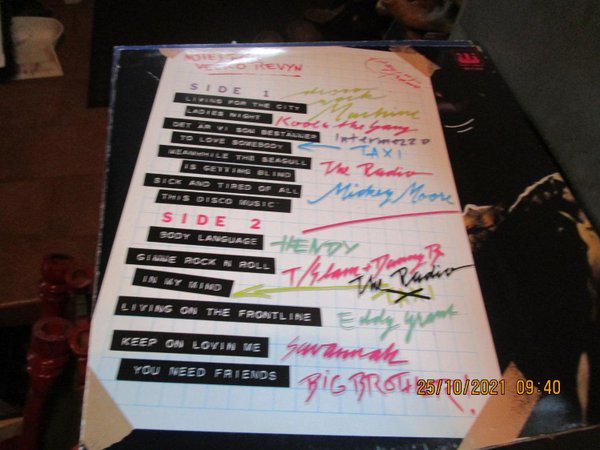 VECKO REVYN
SIDE 1
LIVING FOR THE CITY disco rock Machine
LADIES NIGHT Kool & the Gang
DET ÄR VI SOM BESTÄMMER Intermezzo
TO LOVE SOMEBODY TAXI
MEANWHILE THE SEAGULL
IS GETTING BLIND The Radio
SICK AND TIRED OF ALL
THIS DISCO MUSIC Mickey Moore
SIDE 2
BODY LANGUAGE HENDY
GIMME ROCK N ROLL T/Slam + Danny B
IN MY MIND The Radio
LIVING ON THE FRONTLINE Eddy grant
KEEP ON LOVIN ME Savannah
YOU NEED FRIENDS BIG BROTHER!
25/10/2021 09:40